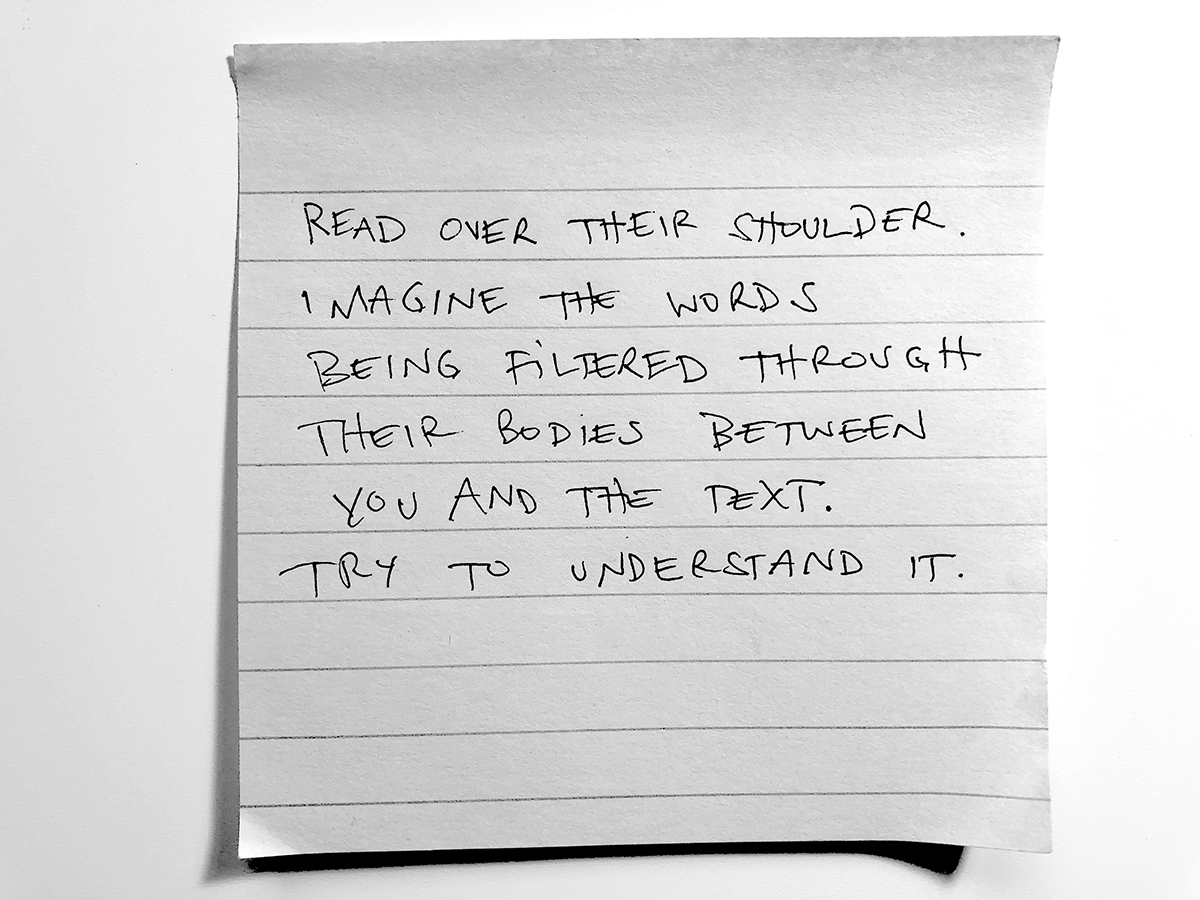 READ OVER THEIR SHOULDER.
IMAGINE THE WORDS
BEING FILTERED THROUGH
THEIR BODIES BETWEEN
YOU AND THE TEXT.
TRY TO UNDERSTAND IT.